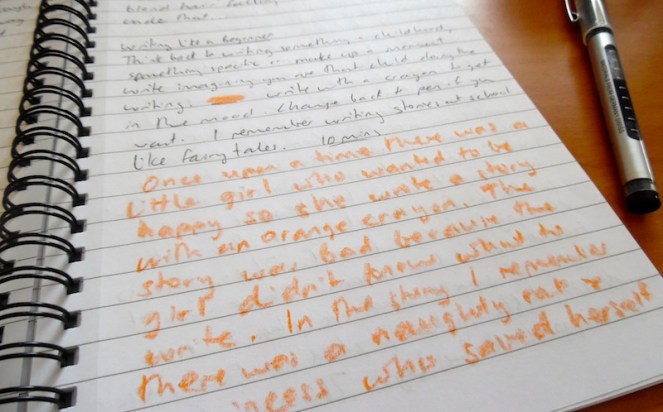 blond hair
Writing like a beginner
Think back to writing something in childhood,
something specific or make up a moment
write imagining you are that child doing the
writing. write with a crayon to get
in the mood change back to pen if you
want. I remember writing stories at school
like fairy tales. 10 mins
Once upon a time there was a
little girl who wanted to be
happy so she wrote a story
with an orange crayon. The
story was bad because the
girl didn't know what to
write. In the story I remember
there was a naughty rat &
incess who saved herself